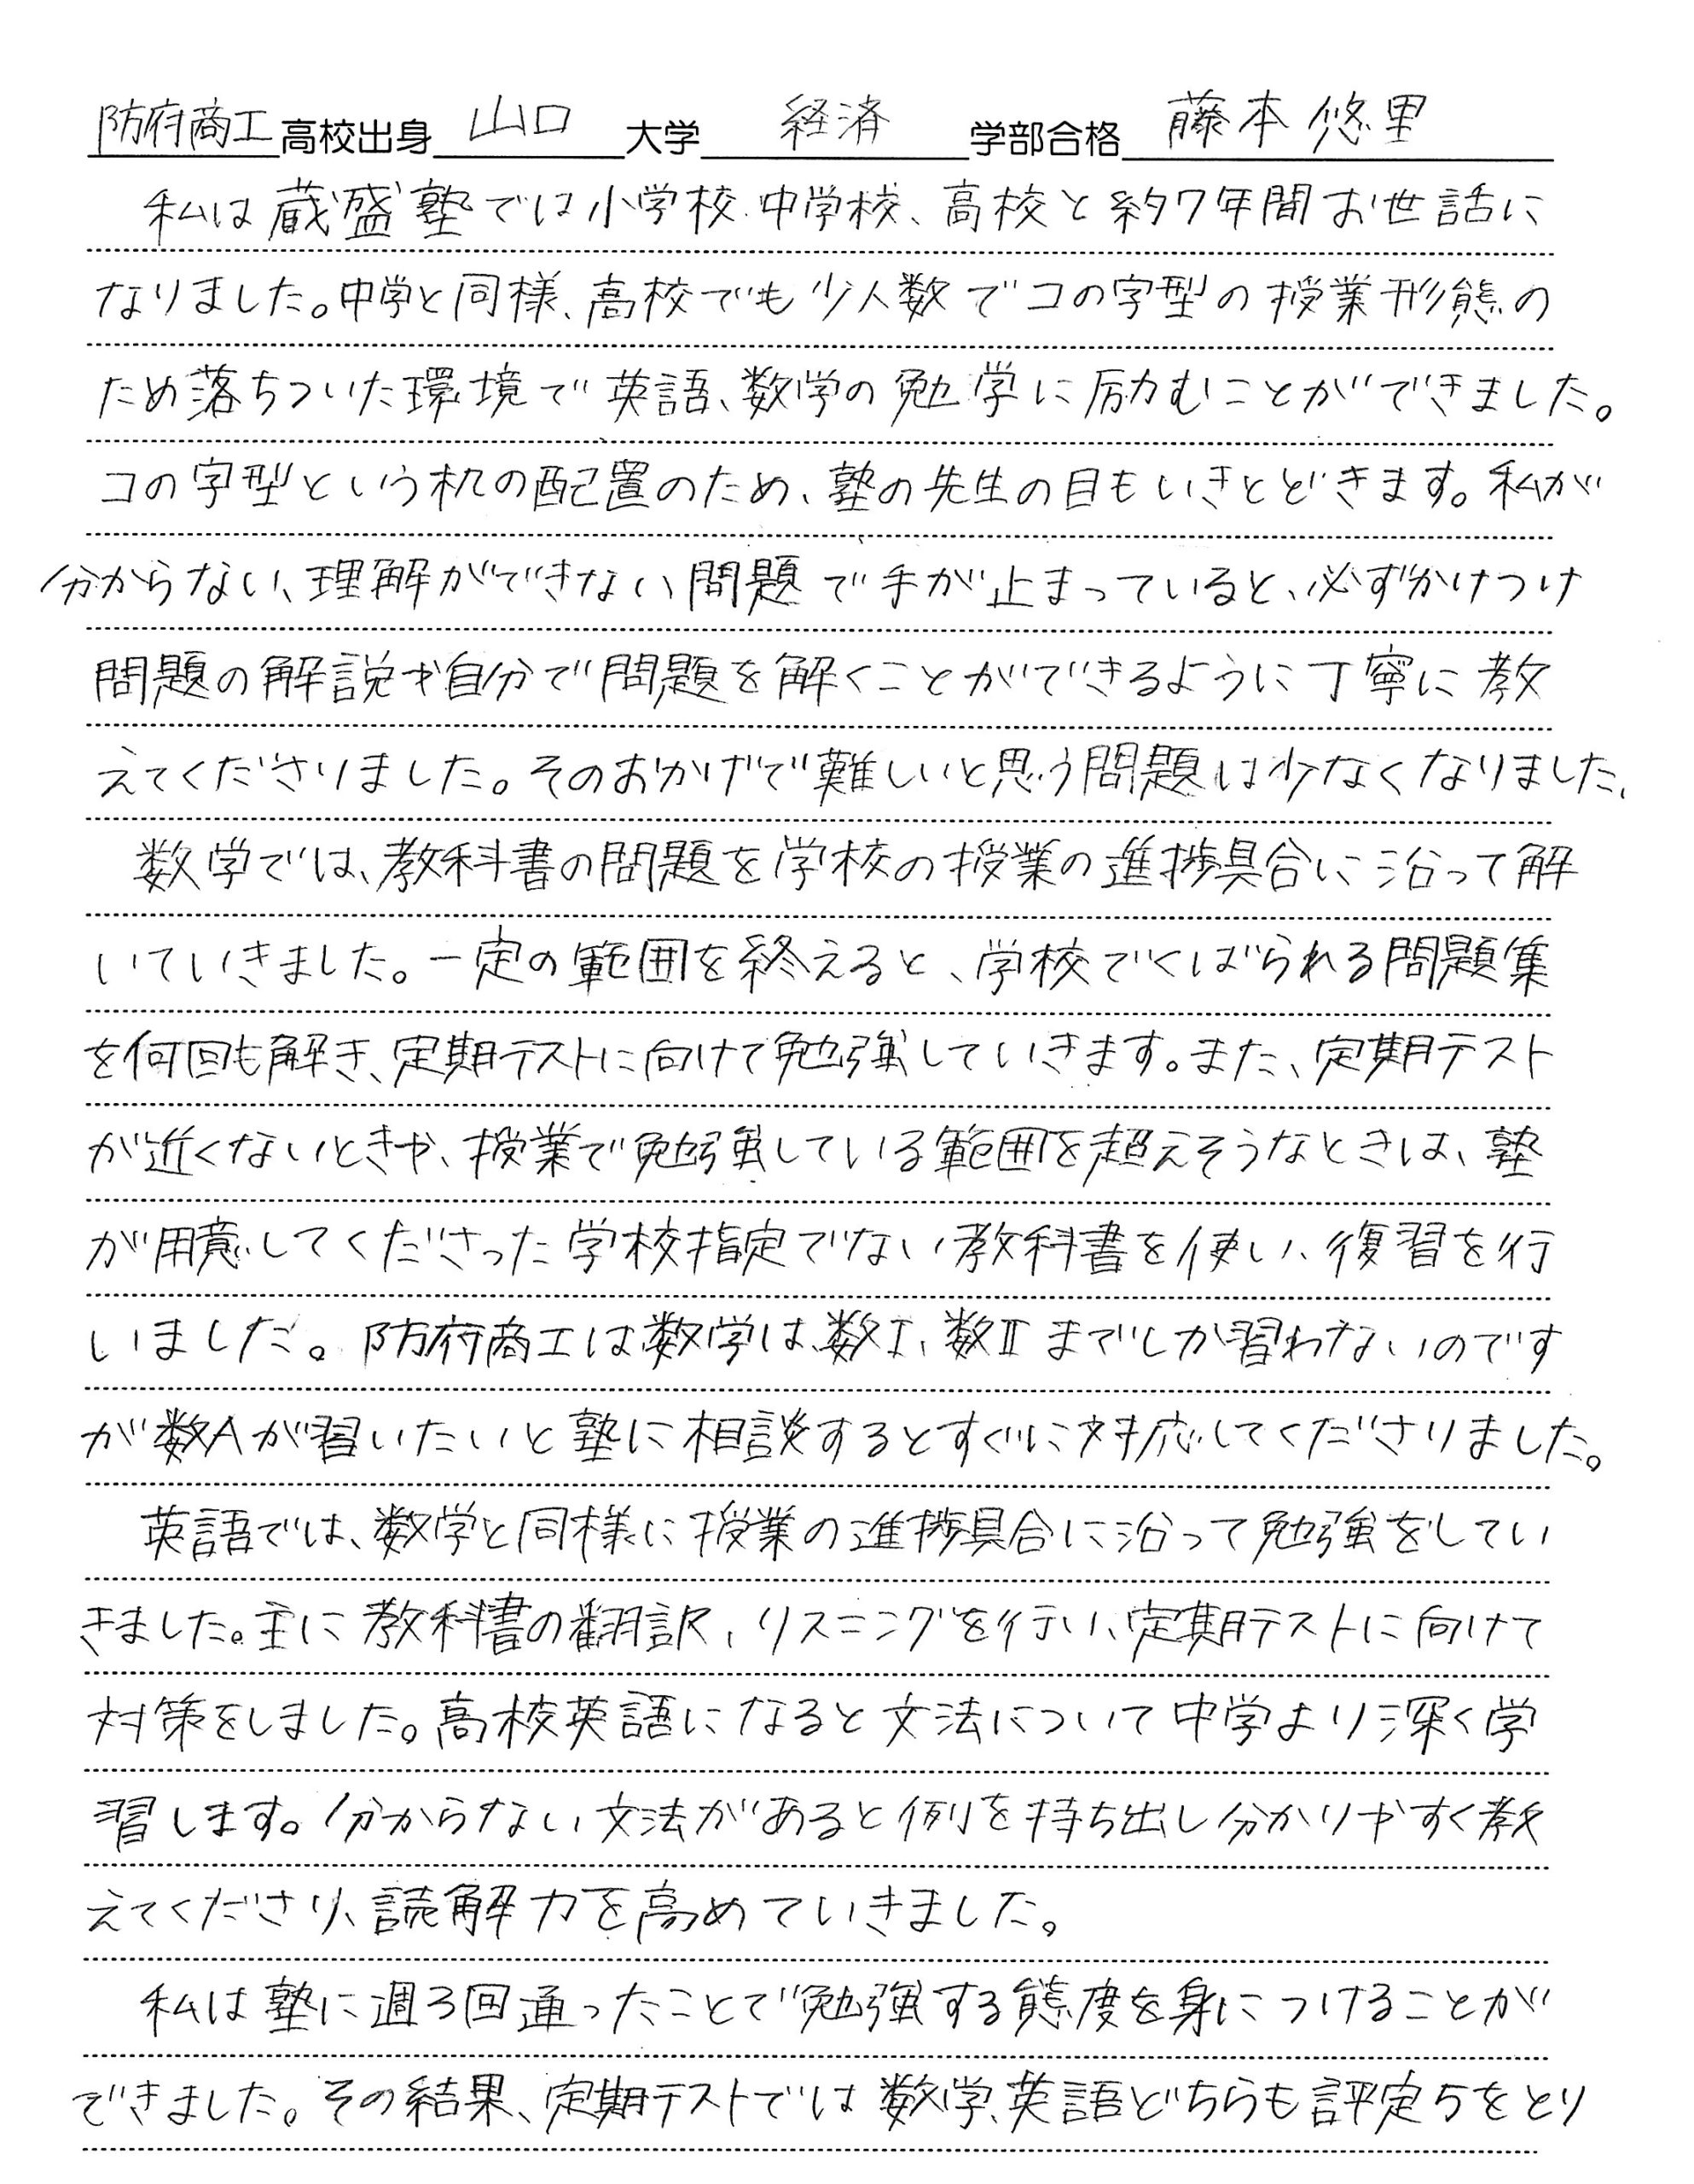 防府商工高校出身 山口 大学 経済 学部合格 藤本 悠里
私は蔵盛塾では小学校、中学校、高校と約7年間お世話に
なりました。中学と同様、高校でも少人数でコの字型の授業形態の
ため落ちついた環境で英語、数学の勉学に励むことができました。
コの字型という机の配置のため、塾の先生の目もいきとどきます。私が
分からない、理解ができない問題で手が止まっていると、必ずかけつけ
問題の解説や自分で問題を解くことができるように丁寧に教
えてくださりました。そのおかげで難しいと思う問題は少なくなりました。
数学では、教科書の問題を学校の授業の進捗具合に沿って解
いていきました。一定の範囲を終えると、学校でくばられる問題集
を何回も解き、定期テストに向けて勉強していきます。また、定期テスト
が近くないときや、授業で勉強している範囲を超えそうなときは、塾
が用意してくださった学校指定でない教科書を使い、復習を行
いました。防府商工は数学は、数Ⅰ、数Ⅱまでしか習わないのです
が数Aが習いたいと塾に相談するとすぐに対応してくださりました。
英語では、数学と同様に授業の進捗具合に沿って勉強をしてい
きました。主に教科書の翻訳、リスニングを行い、定期テストに向けて
対策をしました。高校英語になると文法について中学より深く学
習します。分からない文法があると例を持ち出し分かりやすく教
えてくださり、読解力を高めていきました。
私は塾に週3回通ったことで勉強する態度を身につけることが
できました。その結果、定期テストでは数学、英語どちらも評定5をとり